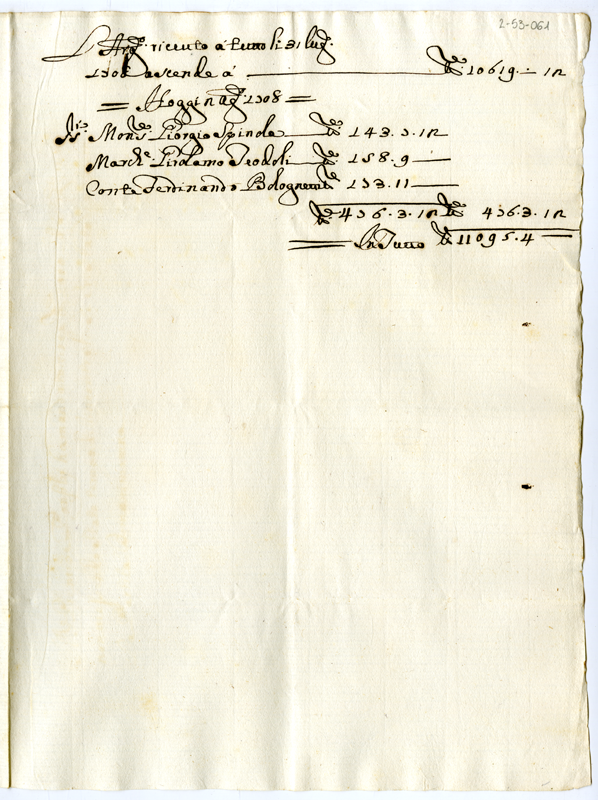 2-53-061
L'Arg.º riceuto à tutto li 31 lug.º
1708 ascende à ——— 10619.— 12
= Hoggi 11 Ag.º 1708 =
Mons.re Giorgio Spinola — 143.3.12
March.e Girolamo Teodoli — 158.9—
Conte Ferdinando Bolognetti 173.11—
436.3.12 436.3.12
= In Tutto 11095.4—